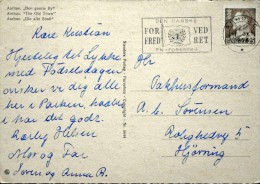 Aarhus. „Den gamle By"
Aarhus. "The Old Town"
Aarhus. „Die alte Stadt"
DEN DANSKE
FOR VED
FRED RET
FN-FORENING
Kære Kristian
Hjertelig til Lykke
med Fødselsdagen
ønsker vi dig alle
her i Parken, haaber
I har det godt.
Kærlig Hilsen
Mor og Far
Søren og Anna R.
Hr.
Pakhusformand
A. L. Sørensen
Rolighedsvej 5
Hjørring